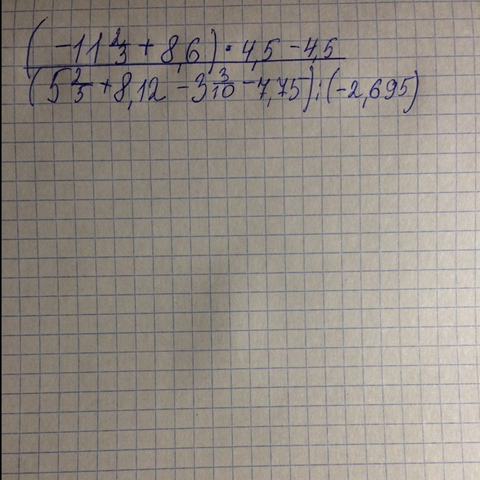 (-11 2/3 + 8,6) · 4,5 - 4,5
(5 2/5 + 8,12 - 3 3/10 - 7,75) : (-2,695)